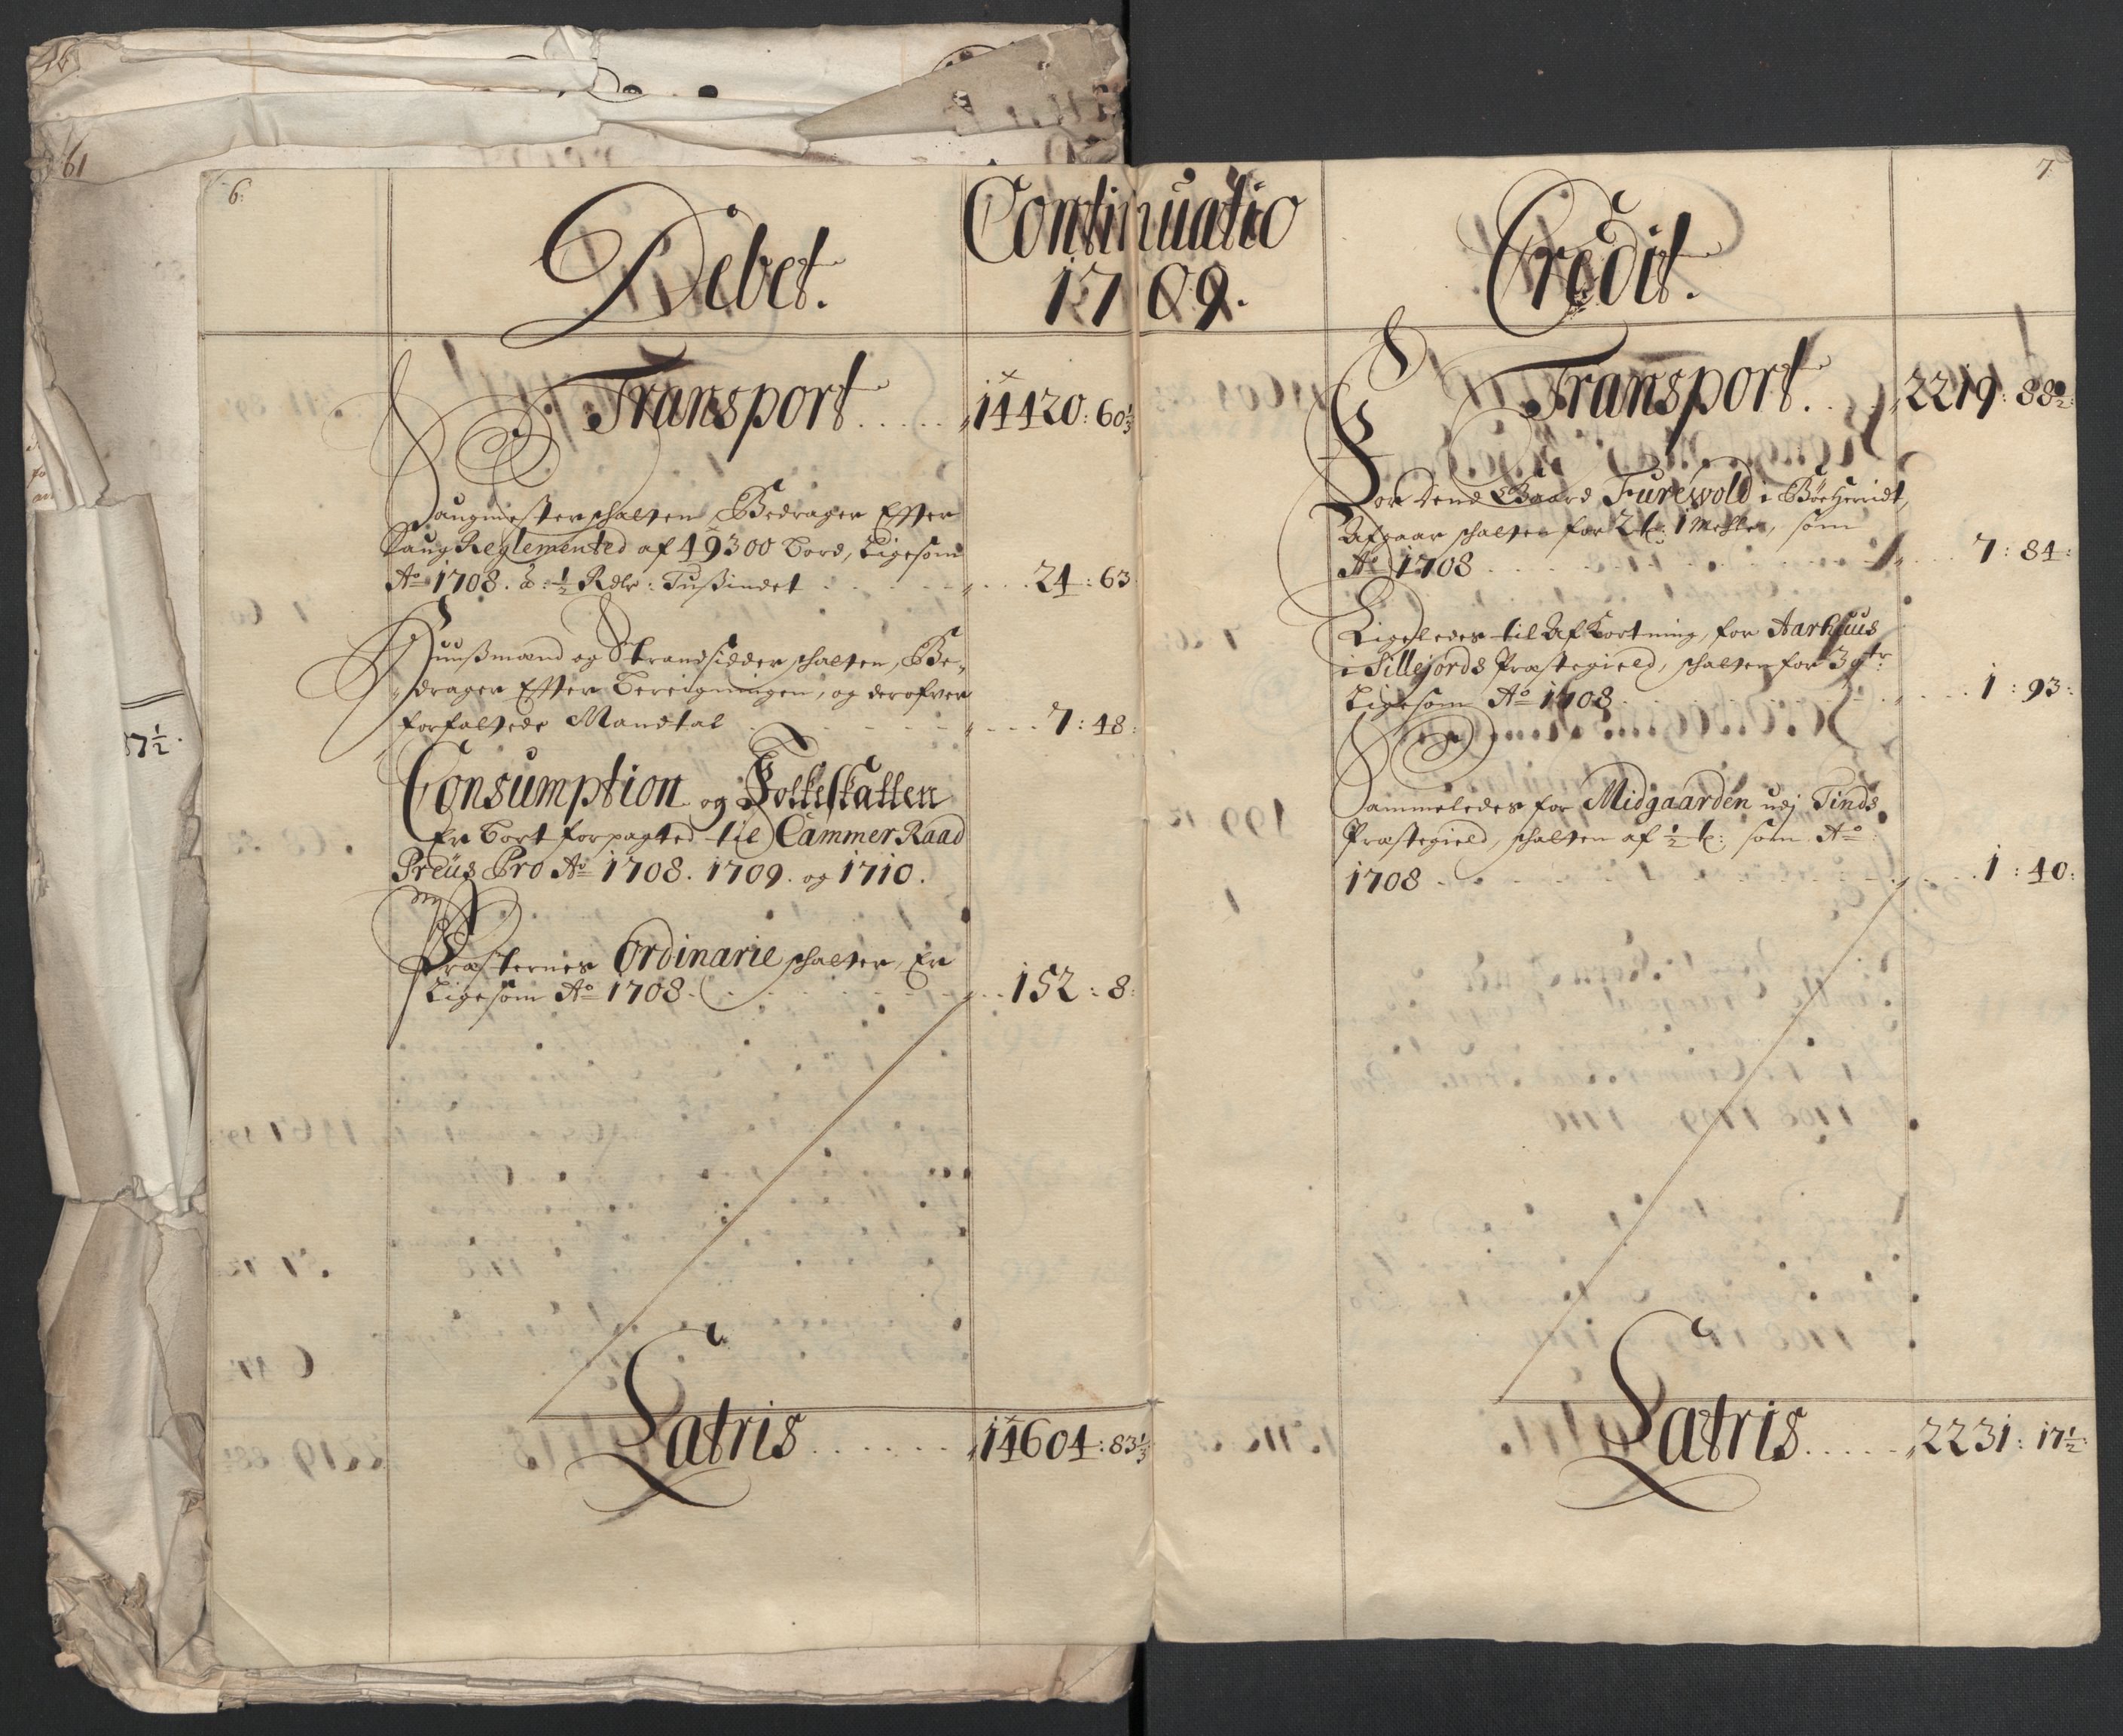 61
6:
Debet.
Continuatio
1709.
Transport . . . . . 14420: 60⅓
Saugmesterschatten Bedrager Effter
Saug Reglemented af 49300 bord, Ligesom
Ao 1708. à: ½ Rdlr: Tußindet . . . 24: 63
Huußmænd og Strandsidder schatten, Be-
drager Effter bereigningen, og derofver
forfattede Mandtal . . . 7: 48:
Consumption og Folkeskatten
Er bort forpagted til Cammer Raad
Preüs Pro Ao 1708. 1709. og 1710.
Præsternes Ordinarie schatter, Er
Ligesom Ao 1708. . . . 152: 8:
Latris . . . . . . 14604: 83⅓
37½.
7
Credit.
Transport. . . . 2219: 88½:
For dend Gaard Furewold i Bøeherridt,
Afgaar schatten for 2 t: 1 Mehler, som
Ao 1708 . . . 7: 84:
Ligeledes til Afkortning, for Aarhuus
i Sillejords Præstegield, schatten for 3
Ligesom Ao 1708. . . . 1: 93:
Sammeledes for Midgaarden udj Tinds
Præstegield, schatten af ½ t: som Ao
1708 . . . 1: 40:
Latris . . . . . 2231: 17½: